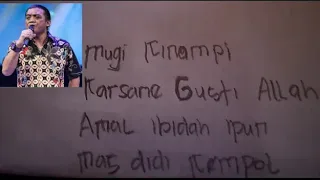 Mugi Kinampi
Karsane Gusti Allah
Amal ibidah ipun
Mas didi Kempol